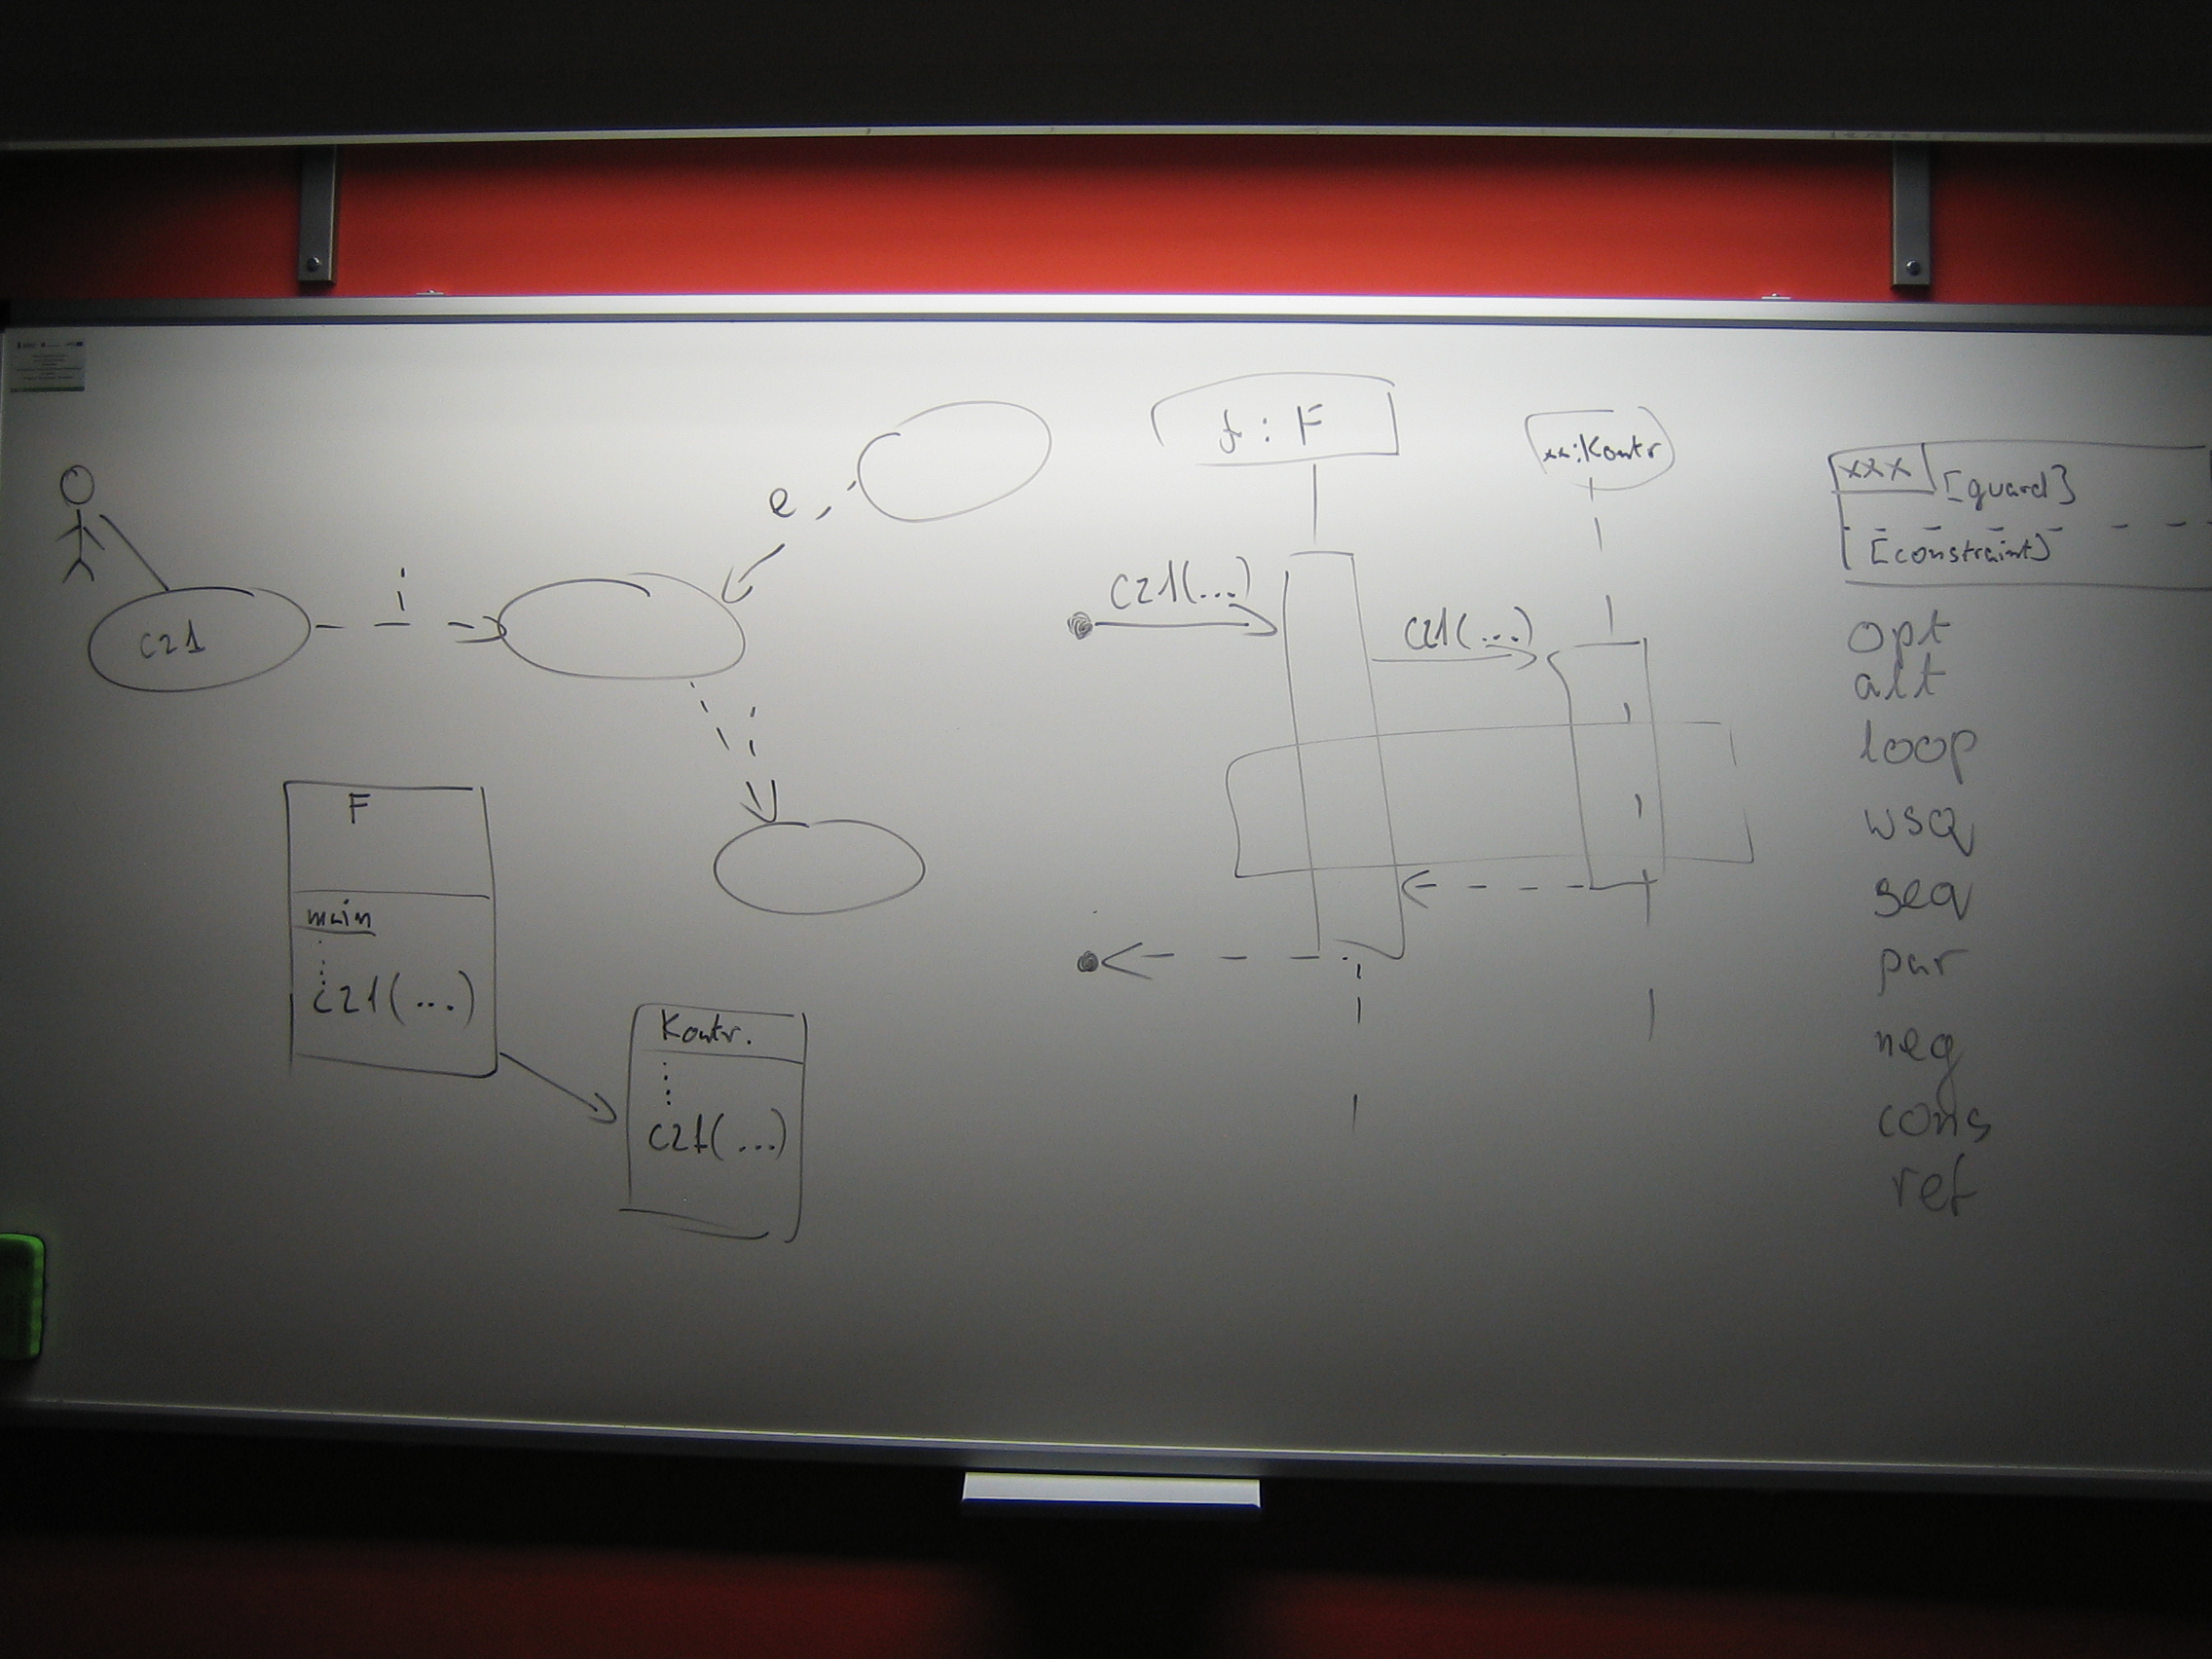 cz1
i
e
i
F
main
cz1(...)
Kontr.
cz1(...)
f : F
xx:Kontr
cz1(...)
cz1(...)
xxx [guard]
[constraint]
opt
alt
loop
wsq
seq
par
neg
cons
ref